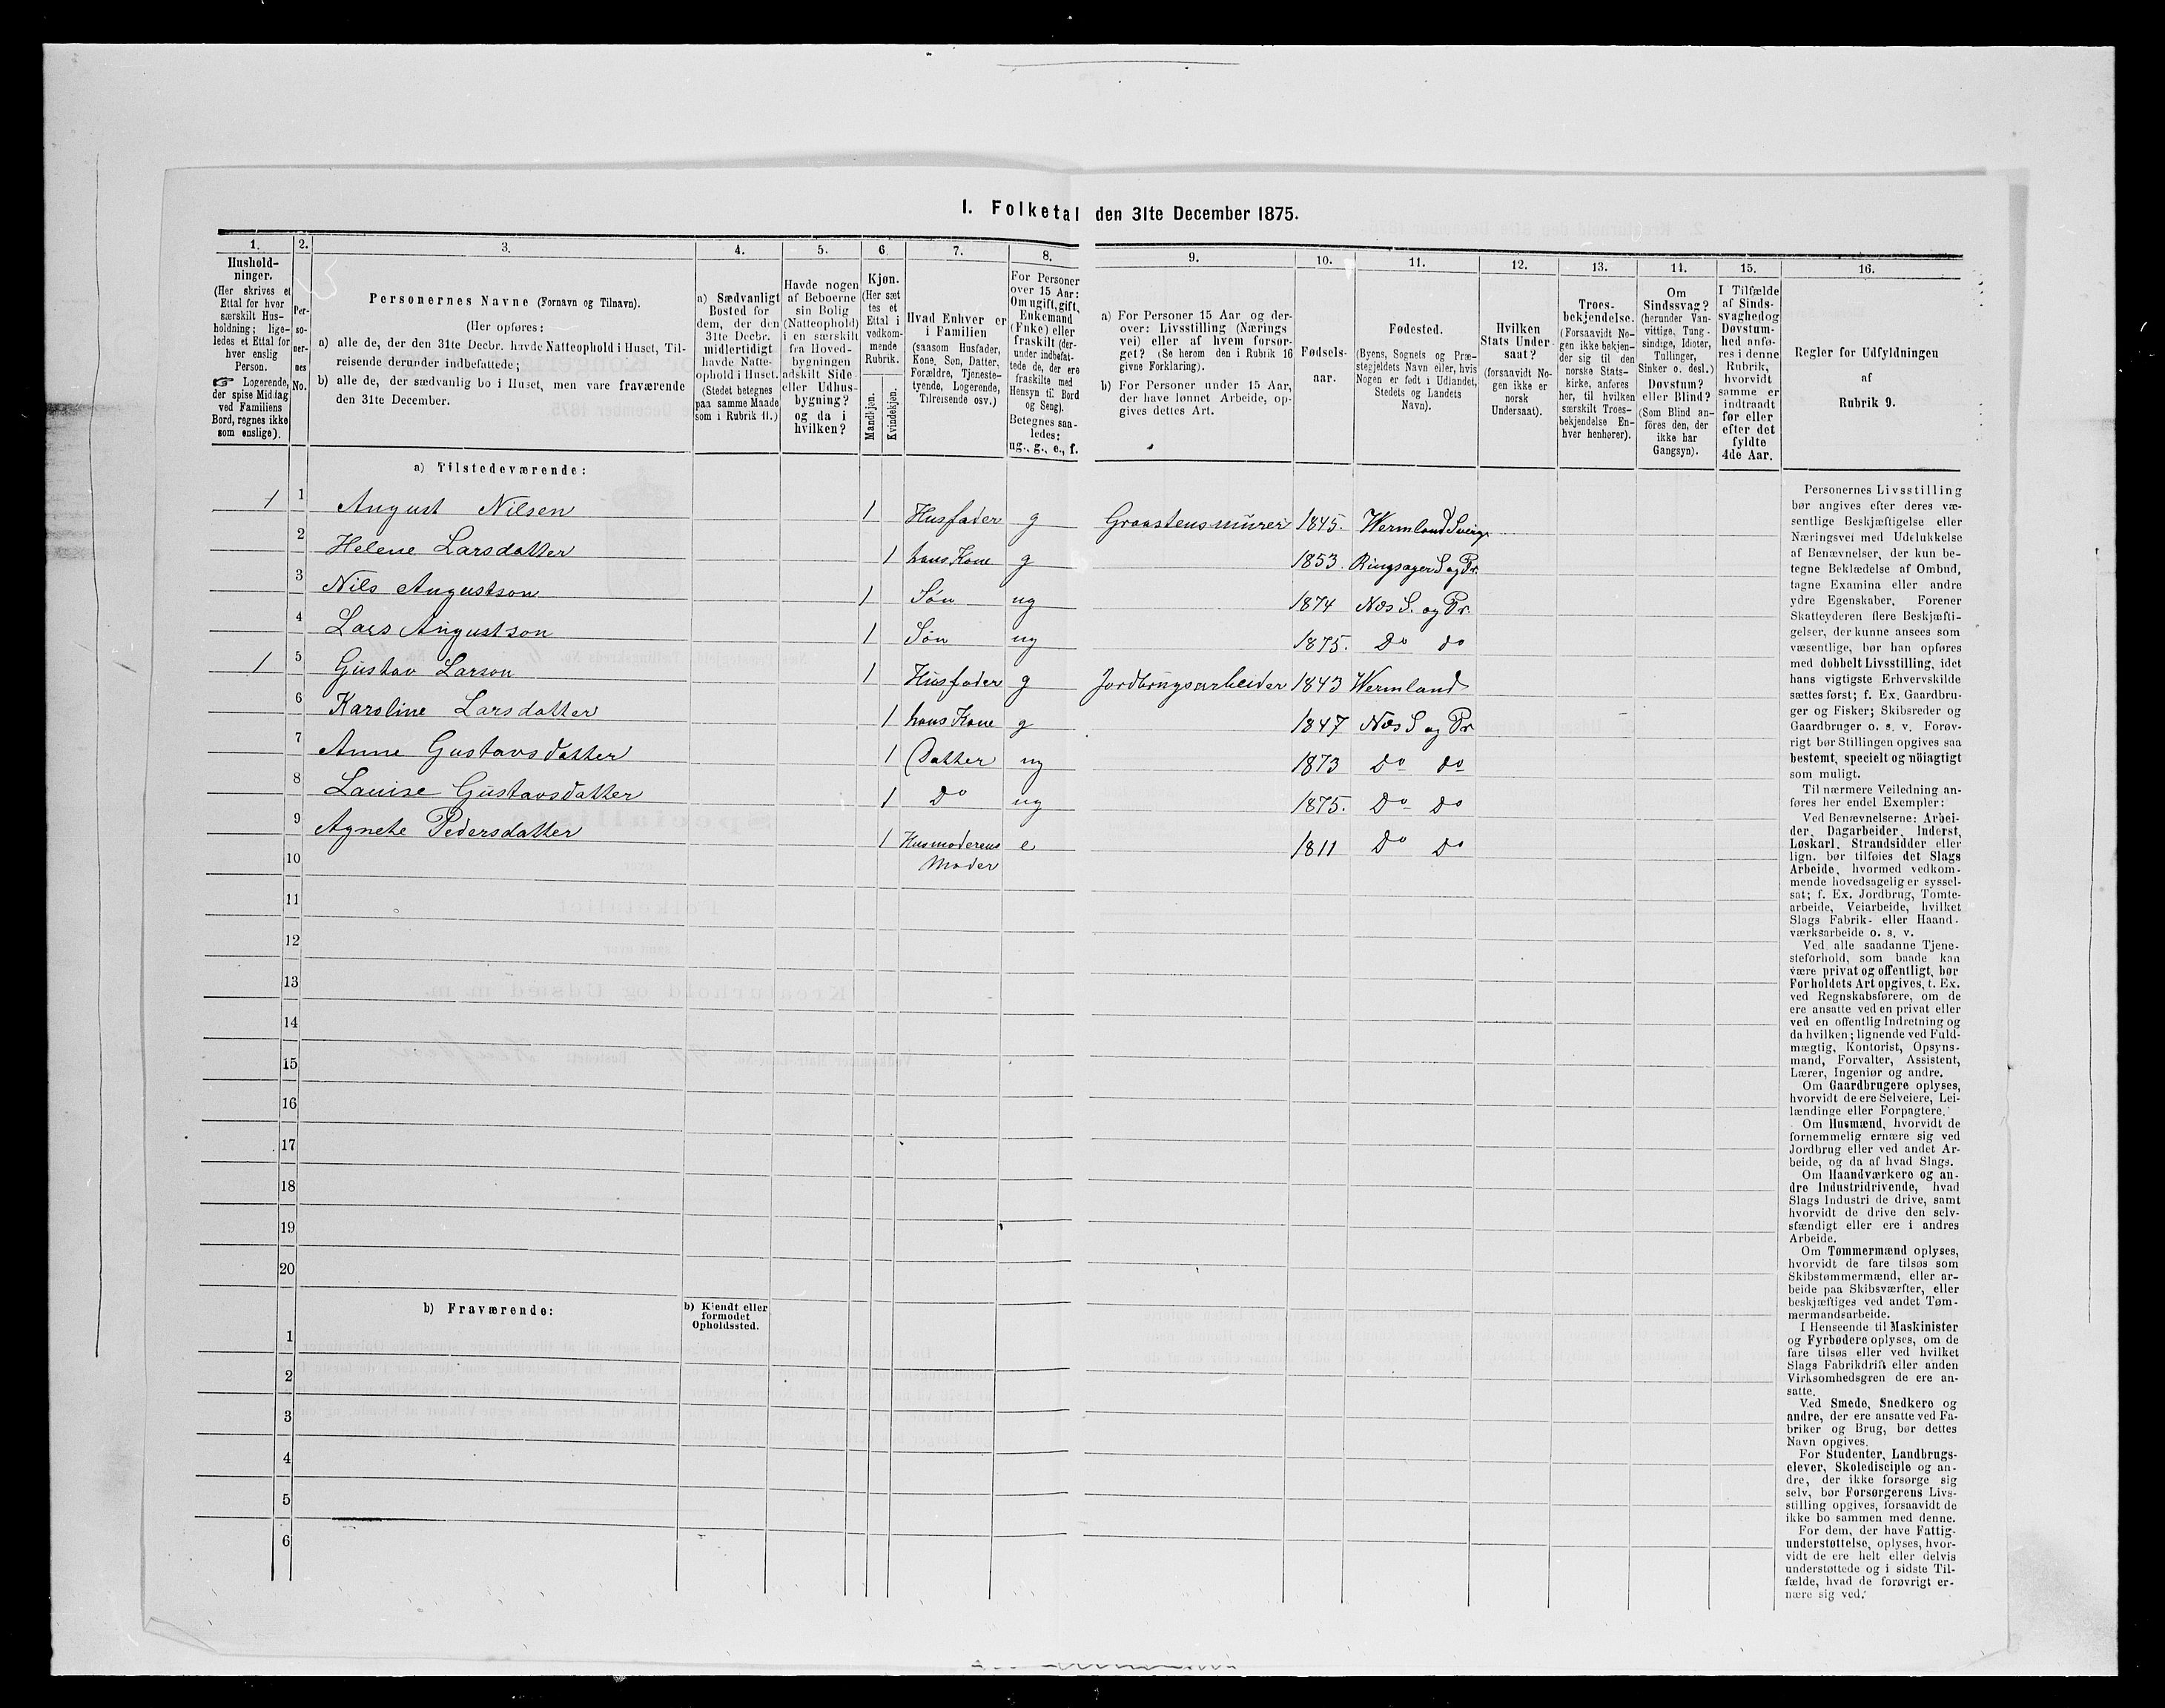 I. Folketal den 31te December 1875.
1. 2. 3. 4. 5. 6. 7. 8. 9. 10. 11. 12. 13. 14. 15. 16.
Hushold-
ninger.
(Her skrives et
Ettal for hver
særskilt Hus-
holdning; lige-
ledes et Ettal for
hver enslig
Person.
☞ Logerende,
der spise Middag
ved Familiens
Bord, regnes ikke
som enslige).
Per-
so-
ner-
nes
No.
Personernes Navne (Fornavn og Tilnavn).
(Her opføres:
a) alle de, der den 31te Decbr. havde Natteophold i Huset, Til-
reisende derunder indbefattede;
b) alle de, der sædvanlig bo i Huset, men vare fraværende
den 31te December.
a) Sædvanligt
Bosted for
dem, der den
31te Decbr.
midlertidigt
havde Natte-
ophold i Huset.
(Stedet betegnes
paa samme Maade
som i Rubrik 11.)
Havde nogen
af Beboerne
sin Bolig
(Natteophold)
i en særskilt
fra Hoved-
bygningen
adskilt Side-
eller Udhus-
bygning?
og da i
hvilken?
Kjøn.
(Her sæt
tes et
Ettal i
vedkom-
mende
Rubrik.
Mandkjøn.
Kvindekjøn.
Hvad Enhver er
i Familien
(saasom Husfader,
Kone, Søn, Datter,
Forældre, Tjeneste-
tyende, Logerende,
Tilreisende osv.)
For Personer
over 15 Aar:
Om ugift, gift,
Enkemand
(Enke) eller
fraskilt (der-
under indbefat-
tede de, der ere
fraskilte med
Hensyn til Bord
og Seng).
Betegnes saa-
ledes:
ug., g., e., f.
a) For Personer 15 Aar og der-
over: Livsstilling (Nærings
vei) eller af hvem forsør-
get? (Se herom den i Rubrik 16
givne Forklaring).
b) For Personer under 15 Aar,
der have lønnet Arbeide, op-
gives dettes Art.
Fødsels-
aar.
Fødested.
(Byens, Sognets og Præ-
stegjeldets Navn eller, hvis
Nogen er født i Udlandet,
Stedets og Landets
Navn).
Hvilken
Stats Under
saat?
(forsaavidt No-
gen ikke er
norsk
Undersaat).
Troes-
bekjendelse.
(Forsaavidt No-
gen ikke bekjen-
der sig til den
norske Stats-
kirke, anføres
her, til hvilken
særskilt Troes-
bekjendelse En-
hver henhører).
Om
Sindssvag?
(herunder Van-
vittige, Tung-
sindige, Idioter,
Tullinger,
Sinker o. desl.)
Døvstum?
eller Blind?
(Som Blind an-
føres den, der
ikke har
Gangsyn).
I Tilfælde
af Sinds-
svaghed og
Døvstum-
hed anfø-
res i denne
Rubrik,
hvorvidt
samme er
indtraadt
før eller
efter det
fyldte
4de Aar.
Regler for Udfyldningen
af
Rubrik 9.
a) Tilstedeværende:
1 1 August Nilsen 1 Husfader g Graastensmurer 1845. Wermland Sverige
2 Helene Larsdatter 1 hans Kone g 1853 Ringsager S og Pr.
3 Nils Augustson 1 Søn ug 1874 Næs S. og Pr
4 Lars Augustson 1 Søn ug 1875. Do do
1 5 Gustav Larson 1 Husfader g Jordbrugsarbeider 1843 Wermland
6 Karoline Larsdatter 1 hans Kone g 1847 Næs S og Pr
7 Anne Gustavsdatter 1 Datter ug 1873 Do do
8 Lauise Gustavsdatter 1 Do ug 1875. Do Do
9 Agnete Pedersdatter 1 Husmoderens e 1811 Do Do
10 Moder
11
12
13
14
15
16
17
18
19
20
b) Fraværende:
b) Kjendt eller
formodet
Opholdssted.
1
2
3
4
5
6
Personernes Livsstilling
bør angives efter deres væ-
sentlige Beskjæftigelse eller
Næringsvei med Udelukkelse
af Benævnelser, der kun be-
tegne Beklædelse af Ombud,
tagne Examina eller andre
ydre Egenskaber. Forener
Skatteyderen flere Beskjæfti-
gelser, der kunne ansees som
væsentlige, bør han opføres
med dobbelt Livsstilling, idet
hans vigtigste Erhvervskilde
sættes først; f. Ex. Gaardbru-
ger og Fisker; Skibsreder og
Gaardbruger o. s. v. Forøv-
rigt bør Stillingen opgives saa
bestemt, specielt og nöiagtigt
som muligt.
Til nærmere Veiledning an-
føres her endel Exempler:
Ved Benævnelserne: Arbei-
der, Dagarbeider, Inderst,
Løskarl, Strandsidder eller
lign. bør tilføies det Slags
Arbeide, hvormed vedkom-
mende hovedsagelig er syssel-
sat; f. Ex. Jordbrug, Tomte-
arbeide, Veiarbeide, hvilket
Slags Fabrik- eller Haand-
værksarbeide o. s. v.
Ved alle saadanne Tjene-
steforhold, som baade kan
være privat og offentligt, bør
Forholdets Art opgives, t. Ex.
ved Regnskabsførere, om de
ere ansatte ved en privat eller
ved en offentlig Indretning og
da hvilken; lignende ved Fuld-
mægtig, Kontorist, Opsyns-
mand, Forvalter, Assistent,
Lærer, Ingeniør og andre.
Om Gaardbrugere oplyses,
hvorvidt de ere Selveiere, Lei-
lændinge eller Forpagtere.
Om Husmænd, hvorvidt de
fornemmelig ernære sig ved
Jordbrug eller ved andet Ar-
beide, og da af hvad Slags.
Om Haandværkere og an-
dre Industridrivende, hvad
Slags Industri de drive, samt
hvorvidt de drive den selv-
stændigt eller ere i andres
Arbeide.
Om Tømmermænd oplyses,
hvorvidt de fare tilsøs som
Skibstømmermænd, eller ar-
beide paa Skibsværfter, eller
beskjæftiges ved andet Tøm-
mermandsarbeide.
I Henseende til Maskinister
og Fyrbødere oplyses, om de
fare tilsøs eller ved hvilket
Slags Fabrikdrift eller anden
Virksomhedsgren de ere an-
satte.
Ved Smede, Snedkere og
andre, der ere ansatte ved Fa-
briker og Brug, bør dettes
Navn opgives.
For Studenter, Landbrugs-
elever, Skoledisciple og an-
dre, der ikke forsørge sig
selv, bør Forsørgerens Livs-
stilling opgives, forsaavidt de
ikke bo sammen med denne.
For dem, der have Fattig-
understøttelse, oplyses, hvor-
vidt de ere helt eller delvis
understøttede og i sidste Til-
fælde, hvad de forøvrigt er-
nære sig ved.